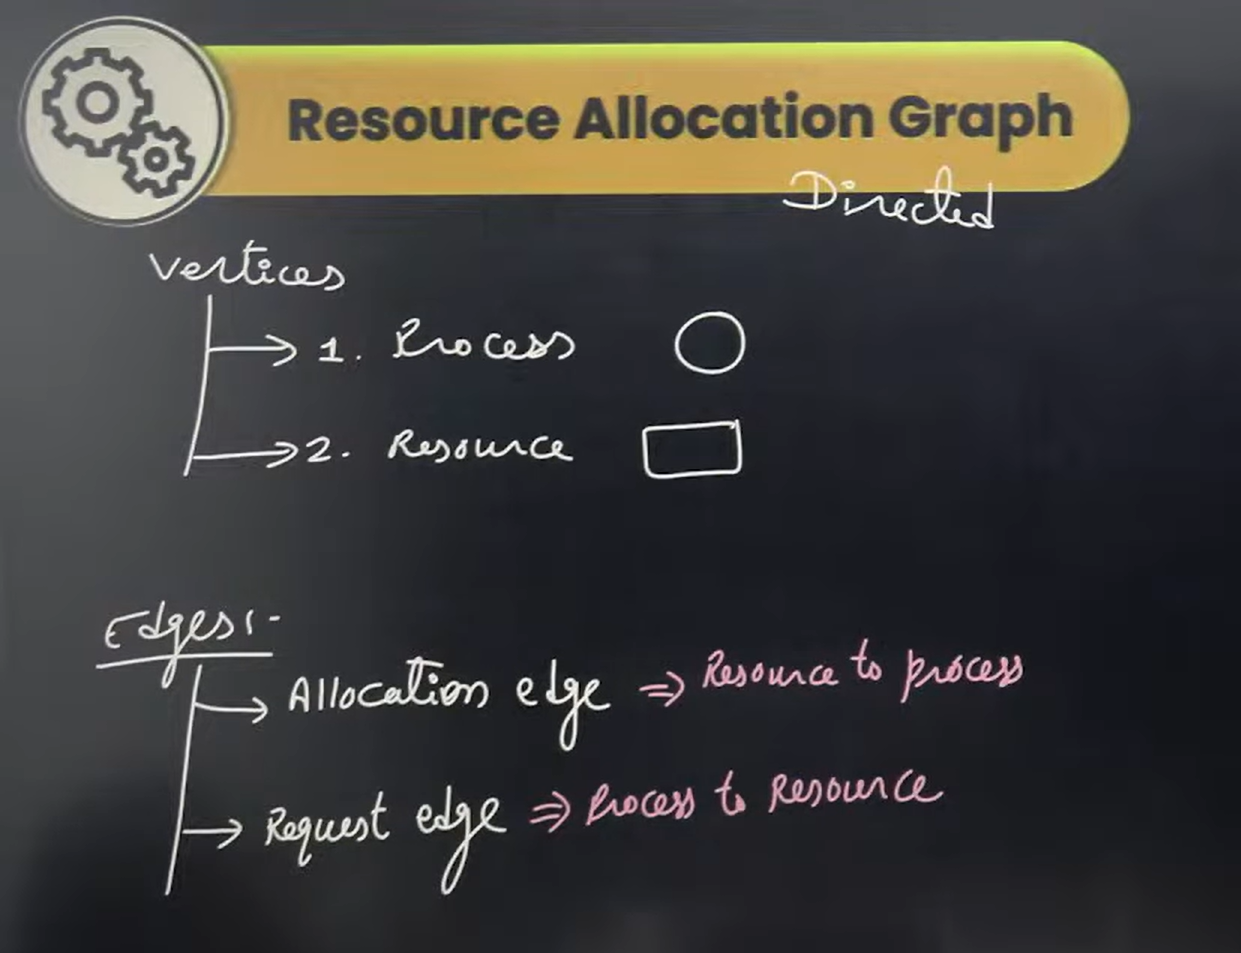 Resource Allocation Graph
Directed
Vertices
1. Process
2. Resource
Edges:-
Allocation edge => Resource to process
Request edge => Process to Resource